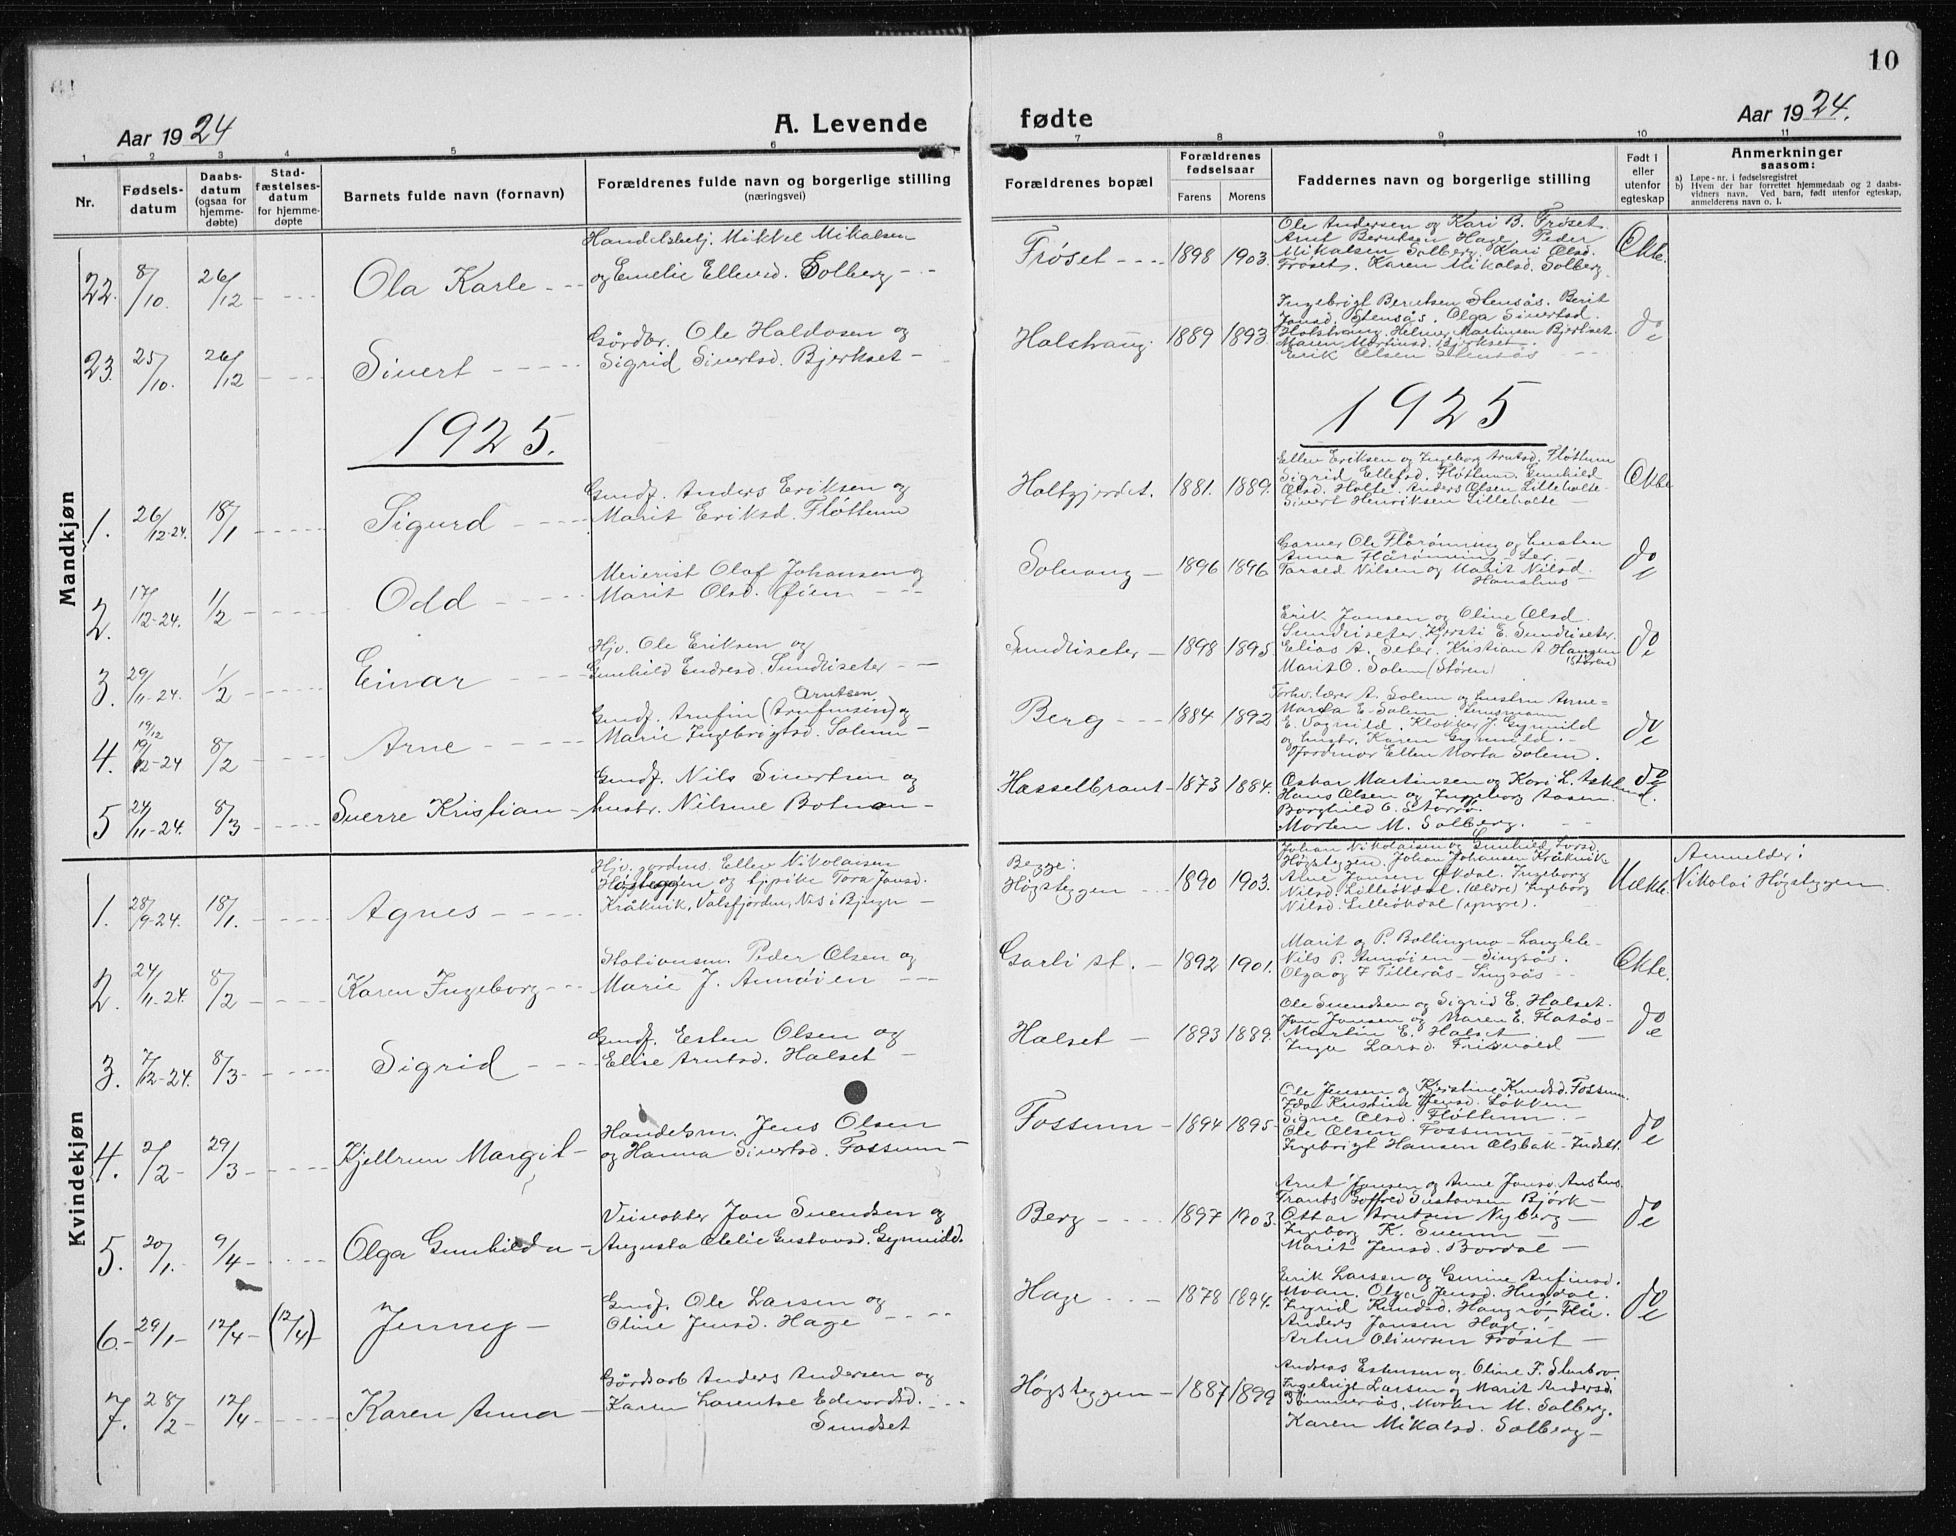 10
Aar 1924
A. Levende fødte
Aar 1924.
1 2 3 4 5 6 7 8 9 10 11
Nr.
Fødsels-datum
Daabs-datum (ogsaa for hjemme-døbte)
Stad-fæstelses-datum for hjemme-døpte
Barnets fulde navn (fornavn)
Forældrenes fulde navn og borgerlige stilling
(næringsvei)
Forældrenes bopæl
Forældrenes fødselsaar
Farens
Morens
Faddernes navn og borgerlige stilling
Født i eller utenfor egteskap
Anmerkninger
saasom:
a) Løpe-nr. i fødselsregistret
b) Hvem der har forrettet hjemmedaab og 2 daabs-
vidners navn. Ved barn, født utenfor egteskap,
anmelderens navn o. l.
Mandkjøn
22. 8/10. 26/12 Ola Karle
Handelsbetj. Mikkel Mikalsen
og Emelie Ellevsd. Solberg
Frøset 1898 1903.
Ole Andersen og Kari B. Frøset.
Arnt Berntsen Hage. Peder
Mikalsen Solberg. Kari Olsd.
Frøset. Karen Mikalsd. Solberg.
Ekte.
23. 25/10. 26/12 Sivert
Gårdbr. Ole Haldosen og
Sigrid Sivertsd. Bjerkset
Halstraug. 1889 1893.
Ingebrigt Berntsen Stensås. Berit
Jonsd. Stensås. Olga Sivertsd.
Halstraug. Helmer Martinsen Bjerkset.
Maren Martinsd. Bjerkset.
Erik Olsen Stensås
do
1925.
1925
1. 26/12-24. 18/1 Sigurd
Gmdf. Anders Eriksen og
Marit Eriksd. Fløttum
Holtgjerdet. 1881. 1889.
Ellev Eriksen og Ingeborg Arntsd. Fløttum
Sigrid Ellefsd. Fløttum. Gunhild
Olsd. Holte. Anders Olsen Lilleholte
Sivert Henriksen Lilleholte
Ekte
2. 17/12-24. 1/2 Odd
Meierist Olaf Johansen og
Marit Olsd. Øien
Solvang 1896 1896
Garver Ole Flårønning og hustru
Anna Flårønning - Ler.
Tarald Nilsen og Marit Nilsd.
do
3. 29/11-24. 1/2 Einar
Hjv. Ole Eriksen og
Gunhild Endresd. Sundliseter
Sundliseter 1898 1895
Erik Jonsen og Oline Olsd.
Sundliseter. Kjersti E. Sundliseter.
Elias A. Seter. Kristian A. Haugen
(Støren)
Marit O. Solem (Støren)
do
4. 19/12 19/12-24 8/2 Arne
Arntsen
Gmdf. Arnfin (Arnfinsen) og
Marie Ingebrigtsd. Solem
Berg 1884 1892
Forhv. lærer A. Solem og hustru Anne-
Marta E. Solem. Lensmann
E. Vagnild. Klokker J. Gynnild
og hustr. Karen Gynnild.
Jordmor Ellen Marta Solem.
do
5 24/11-24. 8/3 Sverre Kristian
Gmdf. Nils Sivertsen og
hustr. Nilsine Botnan
Hasselbraut 1873 1884.
Oskar Martinsen og Kari L. Asklund.
Hans Olsen og Ingeborg Aasen.
Borghild O. Storrø.
Morten M. Solberg.
do
Kvindekjøn
1. 28/9-24. 18/1. Agnes
Hjv. gårdms. Ellev Nikolaisen
Høgsteggen og tjpike Tora Jonsd.
Kråkvik, Valsfjorden, Nes i Bjugn
Begge:
Høgsteggen 1890 1903.
Johan Nikolaisen og Gunhild Larsd.
Høgsteggen. Johan Johansen Kråkvik
Alve Jonsen Økdal. Ingeborg
Nilsd. Lilleøkdal. (ældre) Ingeborg
Nilsd. Lilleøkdal (yngre).
Uekte.
Anmelder:
Nikolai Høgsteggen
2. 24/11-24. 8/2 Karen Ingeborg
Stationsm. Peder Olsen og
Marie J. Aunøien
Garli st. 1892 1901.
Marit og P. Bollingmo - Langlete
Nils P. Aunøien - Singsås.
Olga og F. Tillerås - Singsås
Ekte.
3. 7/12-24. 8/3 Sigrid
Gmdf. Esten Olsen og
Elise Arntsd. Halset
Halset 1893 1889.
Ole Svendsen og Sigrid E. Halset.
Jon Jonsen og Maren E. Flatås
Martin E. Halset
Inga Larsd. Frisvold
do
4. 2/2 29/3 Kjellrun Margit
Handelsm. Jens Olsen
og Hanna Sivertsd. Fossum
Fossum 1894 1895
Ole Jensen og Kjerstine Knudsd. Fossum.
Ida Kristine Jensd. Løkken
Signe Olsd. Fløttum
Ole Olsen Fossum
Ingebrigt Hansen Olsbak - Indset.
do
5. 20/1. 9/4 Olga Gunhilda
Veivokter Jon Svendsen og
Augusta Otelie Gustavsd. Gynnild.
Berg 1897 1903.
Arnt Jonsen og Anne Jonsd. Aushus.
Frants Gotfred Gustavsen Bjørk
Ottar Arntsen Nyberg
Ingeborg K. Svenn
Marit Jensd. Bordal
do
6. 29/1 12/4 (12/4) Jenny
Gmdf. Ole Larsen og
Oline Jensd. Hage
Hage 1878 1894.
Erik Larsen og Gurine Arfinsd.
Moan. Olga Jensd. Hugdal.
Ingrid Knudsd. Haugrø - Flå.
Anders Jonsen Hage.
Artur Oliversen Frøset
do
7. 28/2 12/4 Karen Anna
Gårdsarb Anders Andersen og
Karen Larentse Edvardsd.
Sundset
Høgsteggen 1887 1899
Andreas Estensen og Oline F. Stenbro.
Ingebrigt Larsen og Marit Andersd.
Rønnerås, Morten M. Solberg.
Karen Mikalsd. Solberg